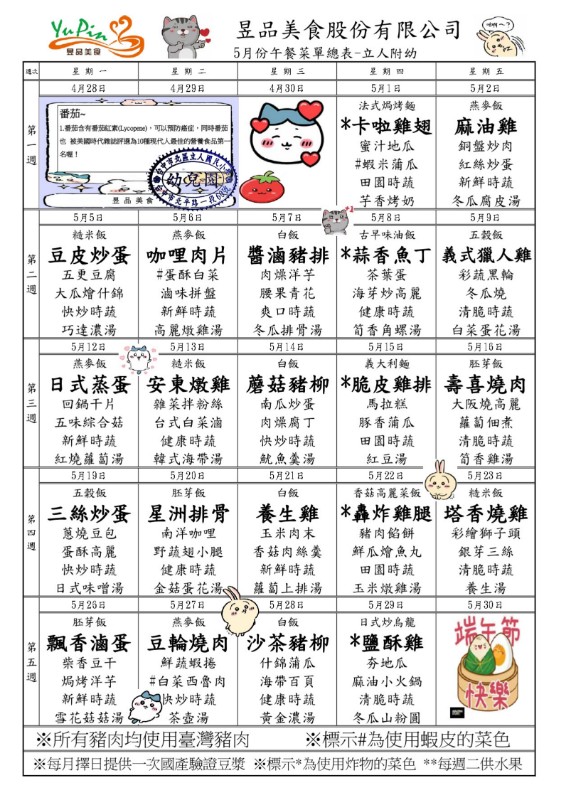 YuPin
昱品美食
昱品美食股份有限公司
5月份午餐菜單總表-立人附幼
週次 星期一 星期二 星期三 星期四 星期五
第一週
4月28日 4月29日 4月30日 5月1日 5月2日
番茄~
1.番茄含有番茄紅素(Lycopene)，可以預防癌症，同時番茄
也 被美國時代雜誌評選為10種現代人最佳的營養食品第一
名喔！
昱品美食
幼兒園
法式焗烤麵 燕麥飯
*卡啦雞翅 麻油雞
蜜汁地瓜 銅盤炒肉
#蝦米蒲瓜 紅絲炒蛋
田園時蔬 新鮮時蔬
芋香烤奶 冬瓜腐皮湯
第二週
5月5日 5月6日 5月7日 5月8日 5月9日
糙米飯 燕麥飯 白飯 古早味油飯 五穀飯
豆皮炒蛋 咖哩肉片 醬滷豬排 *蒜香魚丁 義式獵人雞
五更豆腐 #蛋酥白菜 肉燥洋芋 茶葉蛋 彩蔬黑輪
大瓜燴什錦 滷味拼盤 腰果青花 海芽炒高麗 冬瓜燒
快炒時蔬 新鮮時蔬 爽口時蔬 健康時蔬 清脆時蔬
巧達濃湯 高麗燉雞湯 冬瓜排骨湯 筍香角螺湯 白菜蛋花湯
第三週
5月12日 5月13日 5月14日 5月15日 5月16日
燕麥飯 糙米飯 白飯 義大利麵 胚芽飯
日式蒸蛋 安東燉雞 蘑菇豬柳 *脆皮雞排 壽喜燒肉
回鍋干片 雜菜拌粉絲 南瓜炒蛋 馬拉糕 大阪燒高麗
五味綜合菇 台式白菜滷 肉燥腐丁 豚香蒲瓜 蘿蔔佃煮
新鮮時蔬 健康時蔬 快炒時蔬 田園時蔬 清脆時蔬
紅燒蘿蔔湯 韓式海帶湯 魷魚羹湯 紅豆湯 筍香雞湯
第四週
5月19日 5月20日 5月21日 5月22日 5月23日
五穀飯 胚芽飯 白飯 香菇高麗菜飯 糙米飯
三絲炒蛋 星洲排骨 養生雞 *轟炸雞腿 塔香燒雞
蔥燒豆包 南洋咖哩 玉米肉末 豬肉餡餅 彩繪獅子頭
蛋酥高麗 野蔬翅小腿 香菇肉絲羹 鮮瓜燴魚丸 銀芽三絲
快炒時蔬 健康時蔬 新鮮時蔬 田園時蔬 清脆時蔬
日式味噌湯 金菇蛋花湯 蘿蔔上排湯 玉米燉雞湯 養生湯
第五週
5月26日 5月27日 5月28日 5月29日 5月30日
胚芽飯 燕麥飯 白飯 日式炒烏龍
飄香滷蛋 豆輪燒肉 沙茶豬柳 *鹽酥雞
柴香豆干 鮮蔬蝦捲 什錦蒲瓜 夯地瓜
焗烤洋芋 #白菜西魯肉 海帶百頁 麻油小火鍋
新鮮時蔬 快炒時蔬 健康時蔬 清脆時蔬
雪花菇菇湯 茶壺湯 黃金濃湯 冬瓜山粉圓
端午節
快樂
※所有豬肉均使用臺灣豬肉 ※標示#為使用蝦皮的菜色
※每月擇日提供一次國產驗證豆漿 ※標示*為使用炸物的菜色 **每週二供水果